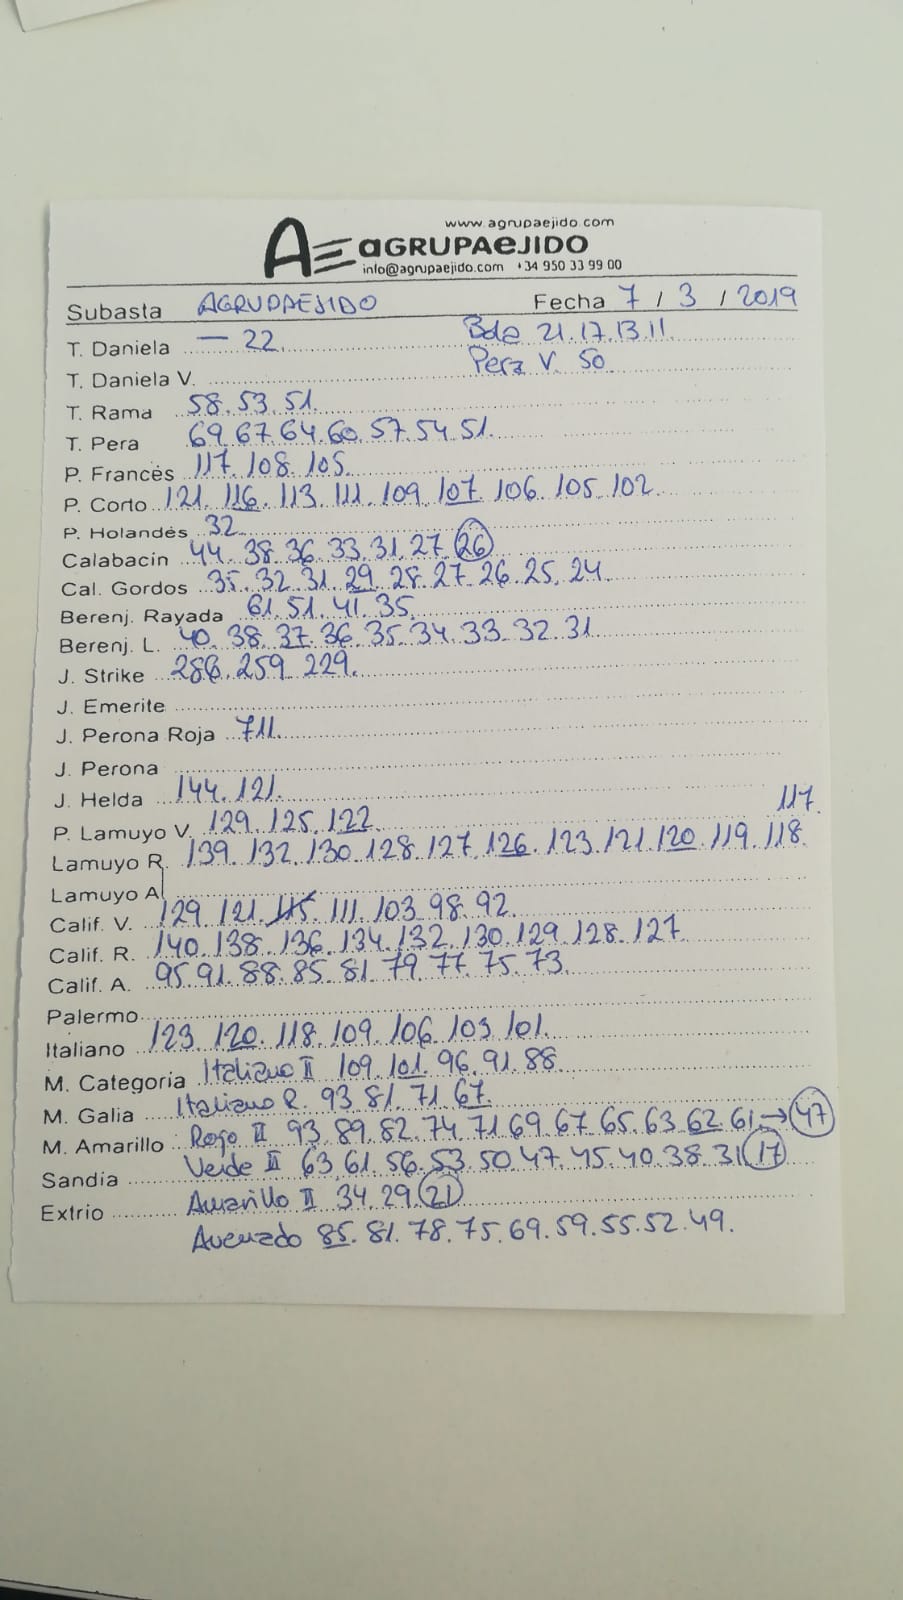 www.agrupaejido.com
AE aGRUPAeJIDO
info@agrupaejido.com +34 950 33 99 00
Subasta AGRUPAEJIDO Fecha 7 / 3 / 2019
T. Daniela — 22. Bola 21.17.13.11.
T. Daniela V. Pera V. 50.
T. Rama 58.53.51.
T. Pera 69.67.64.60.57.54.51.
P. Francés 117.108.105.
P. Corto 121.116.113.111.109.107.106.105.102.
P. Holandés 32.
Calabacin 44.38.36.33.31.27.26
Cal. Gordos 35.32.31.29.28.27.26.25.24.
Berenj. Rayada 61.51.41.35.
Berenj. L. 40.38.37.36.35.34.33.32.31.
J. Strike 286.259.229.
J. Emerite
J. Perona Roja 711.
J. Perona
J. Helda 144.121.
P. Lamuyo V. 129.125.122. 117.
Lamuyo R. 139.132.130.128.127.126.123.121.120.119.118.
Lamuyo A.
Calif. V. 129.121.115.111.103.98.92.
Calif. R. 140.138.136.134.132.130.129.128.127.
Calif. A. 95.91.88.85.81.79.77.75.73.
Palermo
Italiano 123.120.118.109.106.103.101.
M. Categoria Italiano II 109.101.96.91.88.
M. Galia Italiano R. 93.81.71.67.
M. Amarillo Rojo II 93.89.82.74.71.69.67.65.63.62.61→47
Sandia Verde II 63.61.56.53.50.47.45.40.38.31 17
Extrio Amarillo II 34.29.21
Avenzado 85.81.78.75.69.59.55.52.49.